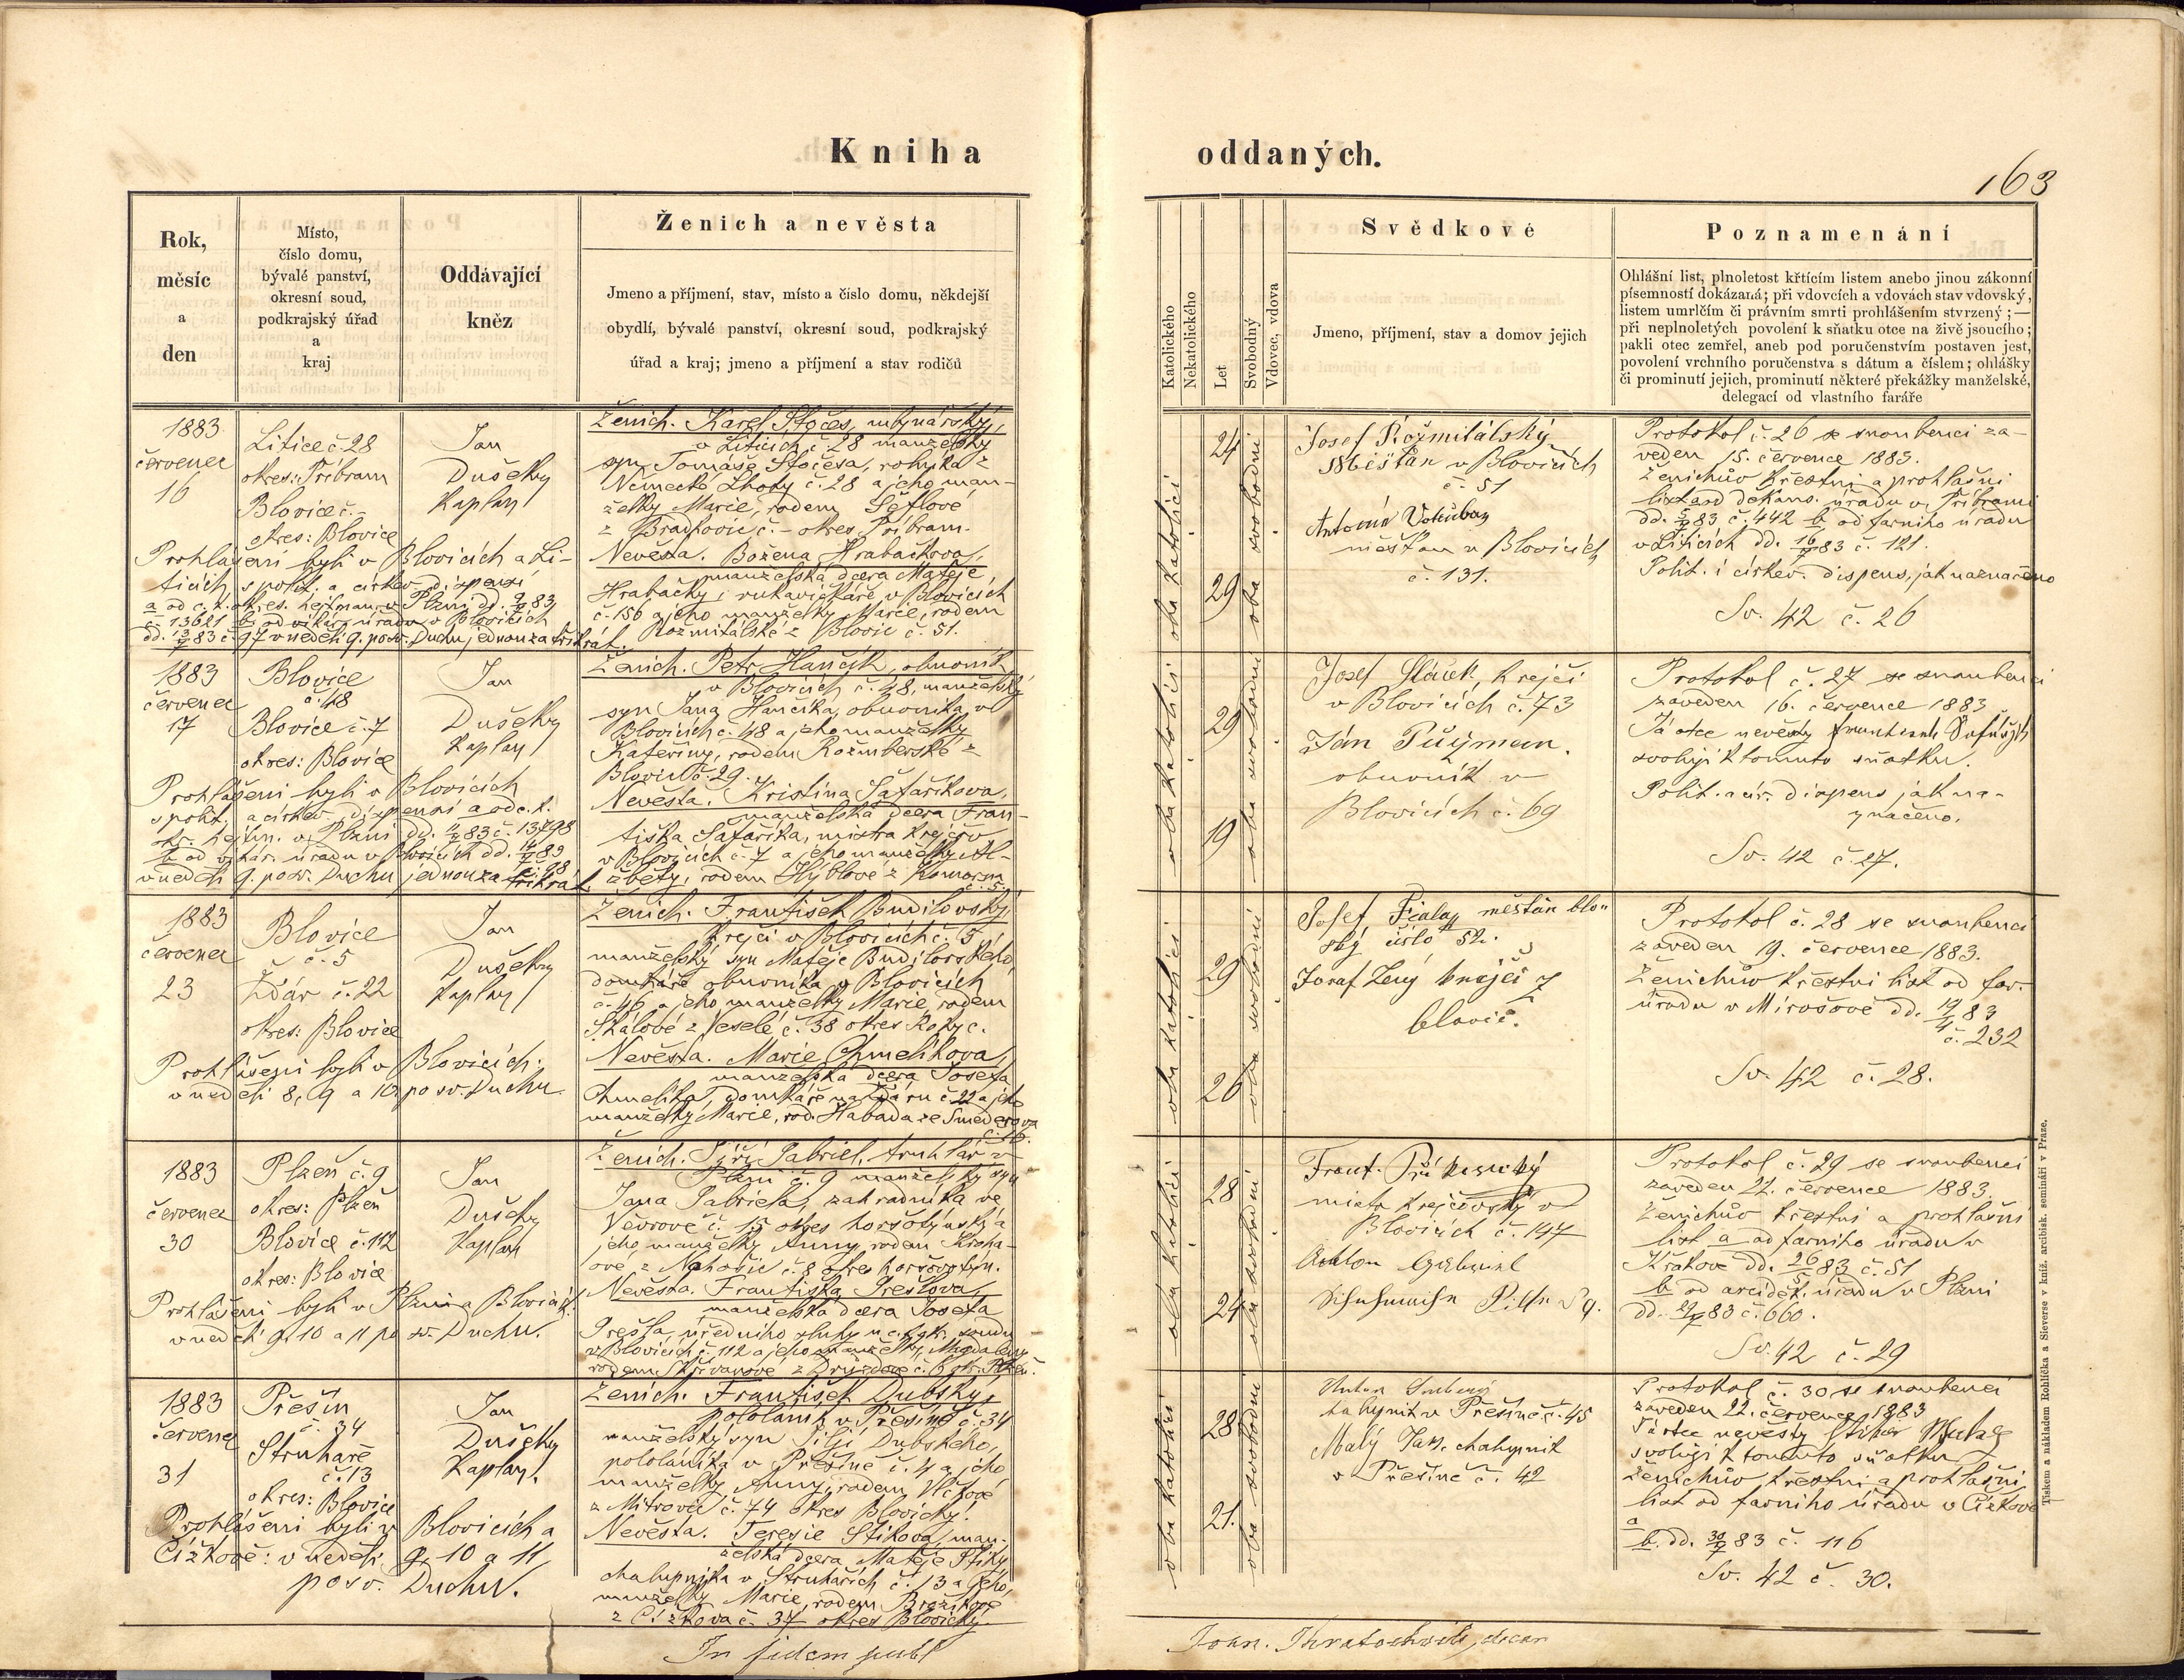 Kniha
oddaných.
163
Rok,
měsíc
a
den
Místo,
číslo domu,
bývalé panství,
okresní soud,
podkrajský úřad
a
kraj
Oddávající
kněz
Ženich a nevěsta
Jmeno a příjmení, stav, místo a číslo domu, někdejší
obydlí, bývalé panství, okresní soud, podkrajský
úřad a kraj; jmeno a příjmení a stav rodičů
Katolického
Nekatolického
Let
Svobodný
Vdovec, vdova
Svědkové
Jmeno, příjmení, stav a domov jejich
Poznamenání
Ohlášní list, plnoletost křtícím listem anebo jinou zákonní
písemností dokázaná; při vdovcích a vdovách stav vdovský,
listem umrlčím či právním smrti prohlášením stvrzený; —
při neplnoletých povolení k sňatku otce na živě jsoucího;
pakli otec zemřel, aneb pod poručenstvím postaven jest,
povolení vrchního poručenstva s dátum a číslem; ohlášky
či prominutí jejich, prominutí některé překážky manželské,
delegací od vlastního faráře
1883
července
16
Litice č 28
okres: Příbram
Blovice č. -
okres: Blovice
Jan
Dušek
Kaplan
Prohlášeni byli v Blovicích a Li-
ticích, s polit. a církev. dispensí
a od c. k. okres. hejtman. v Plzni dd. 9/7 83
č. 13621 b, od vikář. úřadu v Blovicích
dd. 13/7 83 č. 97 v neděli 9. po sv. Duchu, jednou za třikrát.
Ženich. Karel Stočes, mlynářský,
v Liticích č. 28 manželský
syn Tomáše Stočesa, rolníka z
Německé Lhoty č. 28 a jeho man-
želky Marie, rodem
okres. Příbram.
Nevěsta. Božena Hrabačkova,
manželská dcera Matěje
Hrabačky, rukavičkáře v Blovicích
č. 156 a jeho manželky Marie, rodem
Rožmitálské z Blovic č. 51.
oba katolíci
24
29
oba svobodni
Josef Rožmitálský
Měšťan v Blovicích
č. 51
Antonín
měšťan v Blovicích
č. 131.
Protokol č. 26 se snoubenci za-
veden 15. července 1883.
Ženichův křestní a prohlašní
list a od děkans. úřadu v Příbrami
dd. 5/7 83 č. 442 b, od farního úřadu
v Liticích dd. 16/7 83 č. 121.
Polit. i církev. dispens, jak naznačeno
Sv. 42 č. 26
1883
července
17
Blovice
č. 48
Blovice č. 7
okres: Blovice
Jan
Dušek
Kaplan
Prohlášeni byli v Blovicích
s polit. a církev. dispensí a od c. k.
okr. hejtm. v Plzni dd. 83 č. 13798
b od vikár. úřadu v Blovicích dd. 14/7 83
č. 98
v neděli 9. po sv. Duchu jednou za třikrát.
Ženich. Petr Hančík, obuvník
v Blovicích č. 48, manželský
syn Jana Hančíka, obuvníka v
Blovicích č. 48 a jeho manželky
Kateřiny, rodem Rožmberské z
Blovic č. 29.
Nevěsta. Kristina Šafaříkova,
manželská dcera Fran-
tiška Šafaříka, mistra krejčov
v Blovicích č. 7 a jeho manželky Al-
žběty, rodem Hýblové z
č. 5.
oba katolíci
29
19
oba svobodni
Josef krejčí
v Blovicích č. 73
Jan
obuvník v
Blovicích č. 69
Protokol č. 27 se snoubenci
zaveden 16. července 1883
Já otec nevěsty
svoluji k tomuto sňatku.
Polit. a cír. dispens jak na-
značeno.
Sv. 42 č. 27.
1883
července
23
Blovice
č. 5
Ždár č. 22
okres: Blovice
Jan
Dušek
Kaplan
Prohlášeni byli v Blovicích
v neděli 8, 9 a 10 po sv. Duchu.
Ženich. František Budilovský,
krejčí v Blovicích č. 5,
manželský syn Matěje Budilovského
domkáře obuvníka v Blovicích
č. 46 a jeho manželky Marie, rodem
Skálové z Veselé č. 38 okres Rokyc.
Nevěsta. Marie Chmelíkova,
manželská dcera Josefa
Chmelíka, domkáře na Ždáru č 22 a jeho
manželky Marie, rod. Habada ze
oba katolíci
29
26
oba svobodni
Josef Fiala měštan blo-
číslo 52.
Josef krejčí z
blovic.
Protokol č. 28 se snoubenci
zaveden 19. července 1883.
Ženichův křestní list od far.
úřadu v Mirošově dd. 83
č. 232
Sv. 42 č. 28.
1883
července
30
Plzeň č. 9
okres: Plzeň
Blovice č. 112
okres: Blovice
Jan
Dušek
Kaplan
Prohlášeni byli v Plzni a Blovicích
v neděli 9. 10 a 11 po sv. Duchu.
Ženich. Jiří Gabriel, truhlář v
Plzni č. 9 manželský syn
Jana Gabriela, zahradníka ve
č. 15 okres horšotýnský a
jeho manželky Anny, rodem
č. 8 okres horšovotýn.
Nevěsta. Františka Prešlova,
manželská dcera Josefa
Prešla, úředního sluhy u c. k. okr. soudu
v Blovicích č. 112 a jeho manželky, Magdaleny
rodem z č. 6
oba katolíci
28
24
oba svobodni
Frant.
mistr krejčovský v
Blovicích č. 147
Gabriel
Protokol č. 29 se snoubenci
zaveden 22. července 1883
Ženichův křestní a prohlašní
list a od farního úřadu v
dd. 26/5 83 č. 51
b od arciděk. úřadu v Plzni
dd. 29/7 83 č. 660.
Sv. 42 č. 29
1883
července
31
Přešín
č. 34
Struhaře
č. 13
okres: Blovice
Jan
Dušek
Kaplan.
Prohlášeni byli v Blovicích a
Čížkově: v neděli 9, 10 a 11
po sv. Duchu.
Ženich. František Dubský,
pololáník v Přešíně č. 34
manželský syn Jiljí Dubského,
pololáníka v Přešíně č. 4 a jeho
manželky Anny, rodem Vlčkové
z Mítrovic č. 74 okres Blovický.
Nevěsta. Terezie Štikova, man-
želská dcera Matěje Štiky
chalupníka v Struhařích č. 13 a jeho
manželky Marie, rodem
z Čížkova č. 37 okres Blovický.
oba katolíci
28
21.
oba svobodni
v Přešíně č. 45
Malý Jan. chalupnik
v Přešíně č. 42
Protokol č. 30 se snoubenci
zaveden 22. července 1883
Já otec nevěsty
svoluji k tomuto sňatku
Ženichův křestní a prohlašní
list od farního úřadu v Čížkově
a
b. dd. 30/7 83 č. 116
Sv. 42 č. 30.
In fidem publ
Joan. decan
Tiskem a nákladem Rohlíčka a Sieverse v kníž. arcibisk. semináři v Praze.